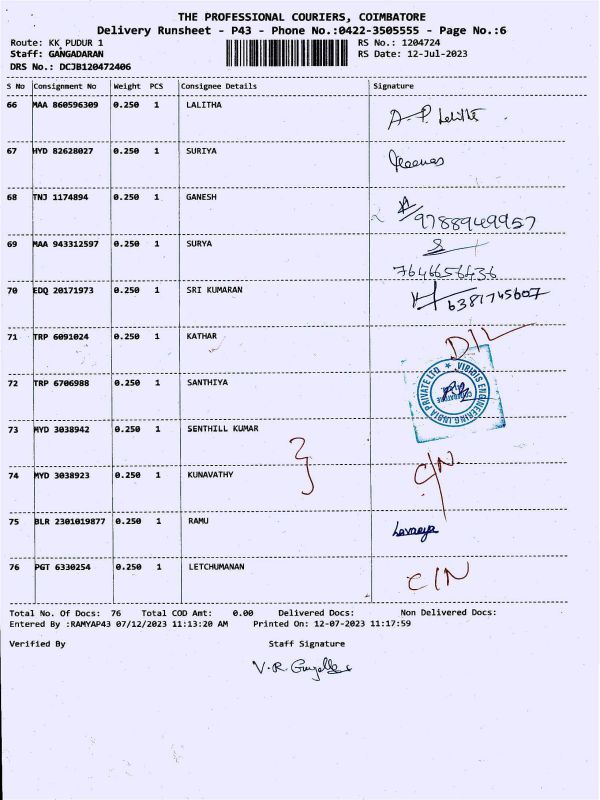 THE PROFESSIONAL COURIERS, COIMBATORE
Delivery Runsheet - P43 - Phone No.:0422-3505555 - Page No.:6
Route: KK PUDUR 1 RS No.: 1204724
Staff: GANGADARAN RS Date: 12-Jul-2023
DRS No.: DCJB120472406
S No Consignment No Weight PCS Consignee Details Signature
66 MAA 860596309 0.250 1 LALITHA A.P. Lalitha
67 HYD 82628027 0.250 1 SURIYA
68 TNJ 1174894 0.250 1 GANESH 9788949957
69 MAA 943312597 0.250 1 SURYA 7646656436
70 EDQ 20171973 0.250 1 SRI KUMARAN 6381745607
71 TRP 6091024 0.250 1 KATHAR D/L
72 TRP 6706988 0.250 1 SANTHIYA VIBIDIS ENGINEERING INDIA PRIVATE LTD
73 MYD 3038942 0.250 1 SENTHILL KUMAR
74 MYD 3038923 0.250 1 KUNAVATHY C/N
75 BLR 2301019877 0.250 1 RAMU Lavanya
76 PGT 6330254 0.250 1 LETCHUMANAN C/N
Total No. Of Docs: 76 Total COD Amt: 0.00 Delivered Docs: Non Delivered Docs:
Entered By :RAMYAP43 07/12/2023 11:13:20 AM Printed On: 12-07-2023 11:17:59
Verified By Staff Signature